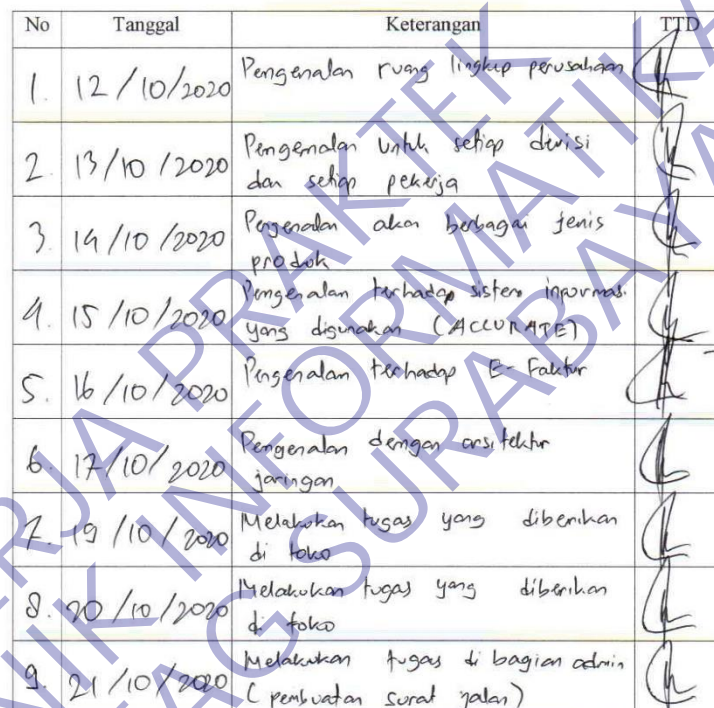 No Tanggal Keterangan TTD
1. 12/10/2020 Pengenalan ruang lingkup perusahaan
2. 13/10/2020 Pengenalan untuk setiap divisi
dan setiap pekerja
3. 14/10/2020 Pengenalan akan berbagai jenis
produk
4. 15/10/2020 Pengenalan terhadap sistem informasi
yang digunakan (ACCURATE)
5. 16/10/2020 Pengenalan terhadap E-Faktur
6. 17/10/2020 Pengenalan dengan arsitektur
jaringan
7. 19/10/2020 Melakukan tugas yang diberikan
di toko
8. 20/10/2020 Melakukan tugas yang diberikan
di toko
9. 21/10/2020 Melakukan tugas di bagian admin
(pembuatan surat jalan)
KERJA PRAKTEK
TEKNIK INFORMATIKA
UNTAG SURABAYA